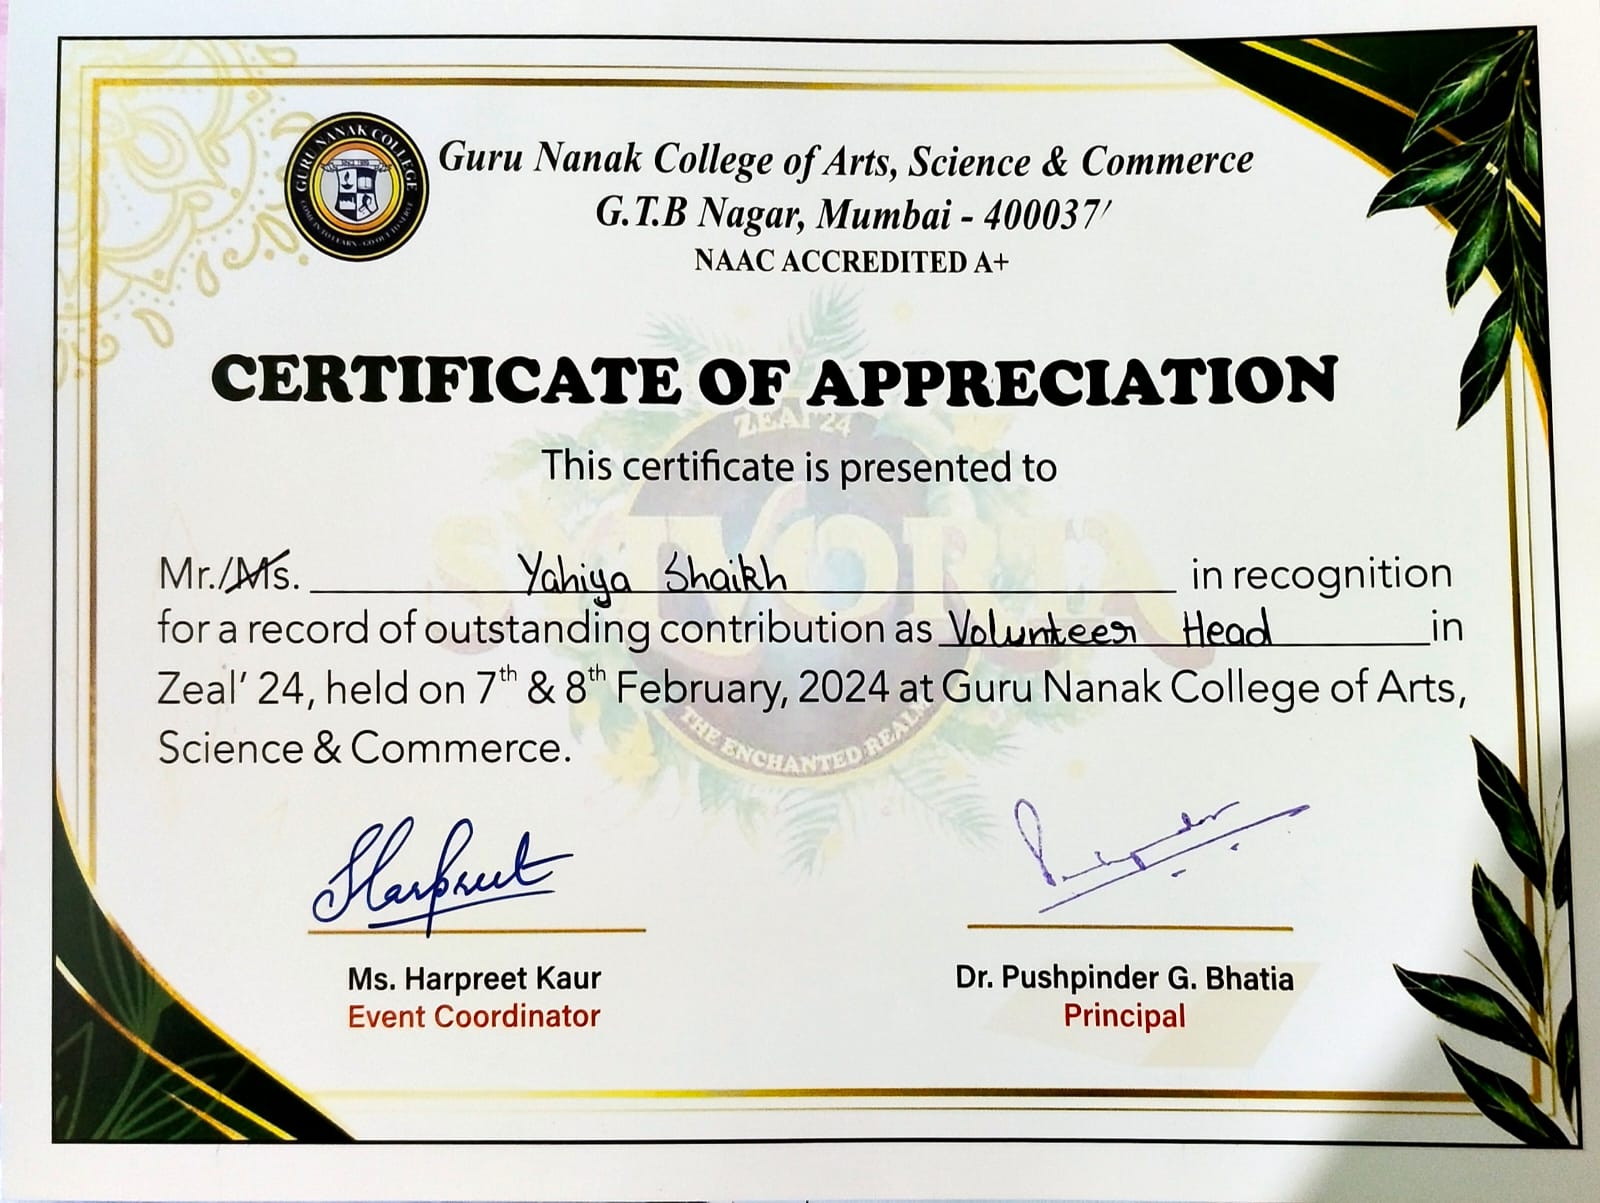 GURU NANAK COLLEGE
Guru Nanak College of Arts, Science & Commerce
G.T.B Nagar, Mumbai - 400037'
NAAC ACCREDITED A+
CERTIFICATE OF APPRECIATION
ZEAL'24
This certificate is presented to
Mr./Ms. Yahiya Shaikh in recognition
for a record of outstanding contribution as Volunteer Head in
Zeal' 24, held on 7th & 8th February, 2024 at Guru Nanak College of Arts,
Science & Commerce.
THE ENCHANTED REALM
Harpreet
Ms. Harpreet Kaur
Event Coordinator
Dr. Pushpinder G. Bhatia
Principal